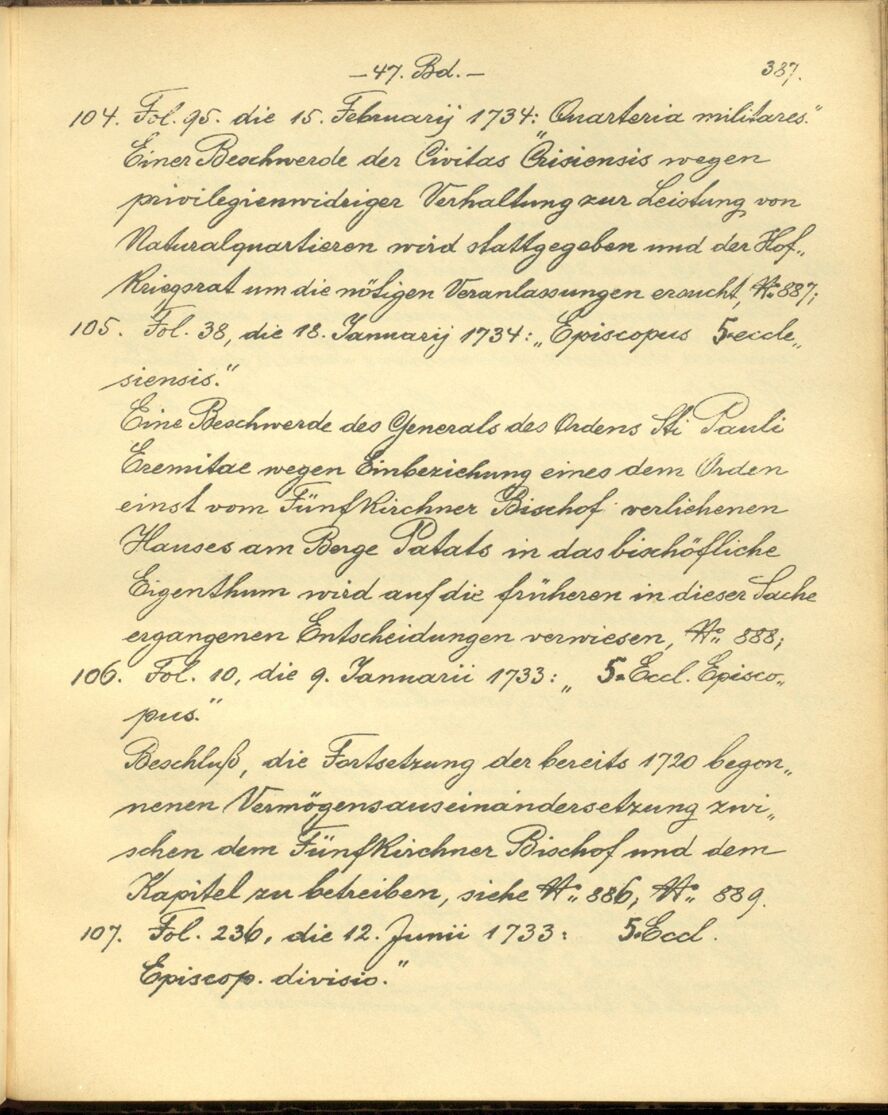 — 47. Bd. — 387.
104. Fol. 95. die 15. Februarij 1734: „Quarteria militares."
Einer Beschwerde der Civitas Crisiensis wegen
privilegienwidriger Verhaltung zur Leistung von
Naturalquartieren wird stattgegeben und der Hof„
Kriegsrat um die nötigen Veranlassungen ersucht, No 887;
105. Fol. 38, die 18. Januarij 1734: „Episcopus 5=eccle„
siensis."
Eine Beschwerde des Generals des Ordens Sti Pauli
Eremitae wegen Einbeziehung eines dem Orden
einst vom Fünfkirchner Bischof verliehenen
Hauses am Berge Patats in das bischöfliche
Eigenthum wird auf die früheren in dieser Sache
ergangenen Entscheidungen verwiesen, No 888;
106. Fol. 10, die 9. Januarii 1733: „ 5=Eccl. Episco„
pus."
Beschluß, die Fortsetzung der bereits 1720 begon„
nenen Vermögensauseinandersetzung zwi„
schen dem Fünfkirchner Bischof und dem
Kapitel zu betreiben, siehe No 886, No 889.
107. Fol. 236, die 12. Junii 1733: 5=Eccl.
Episcop. divisio."